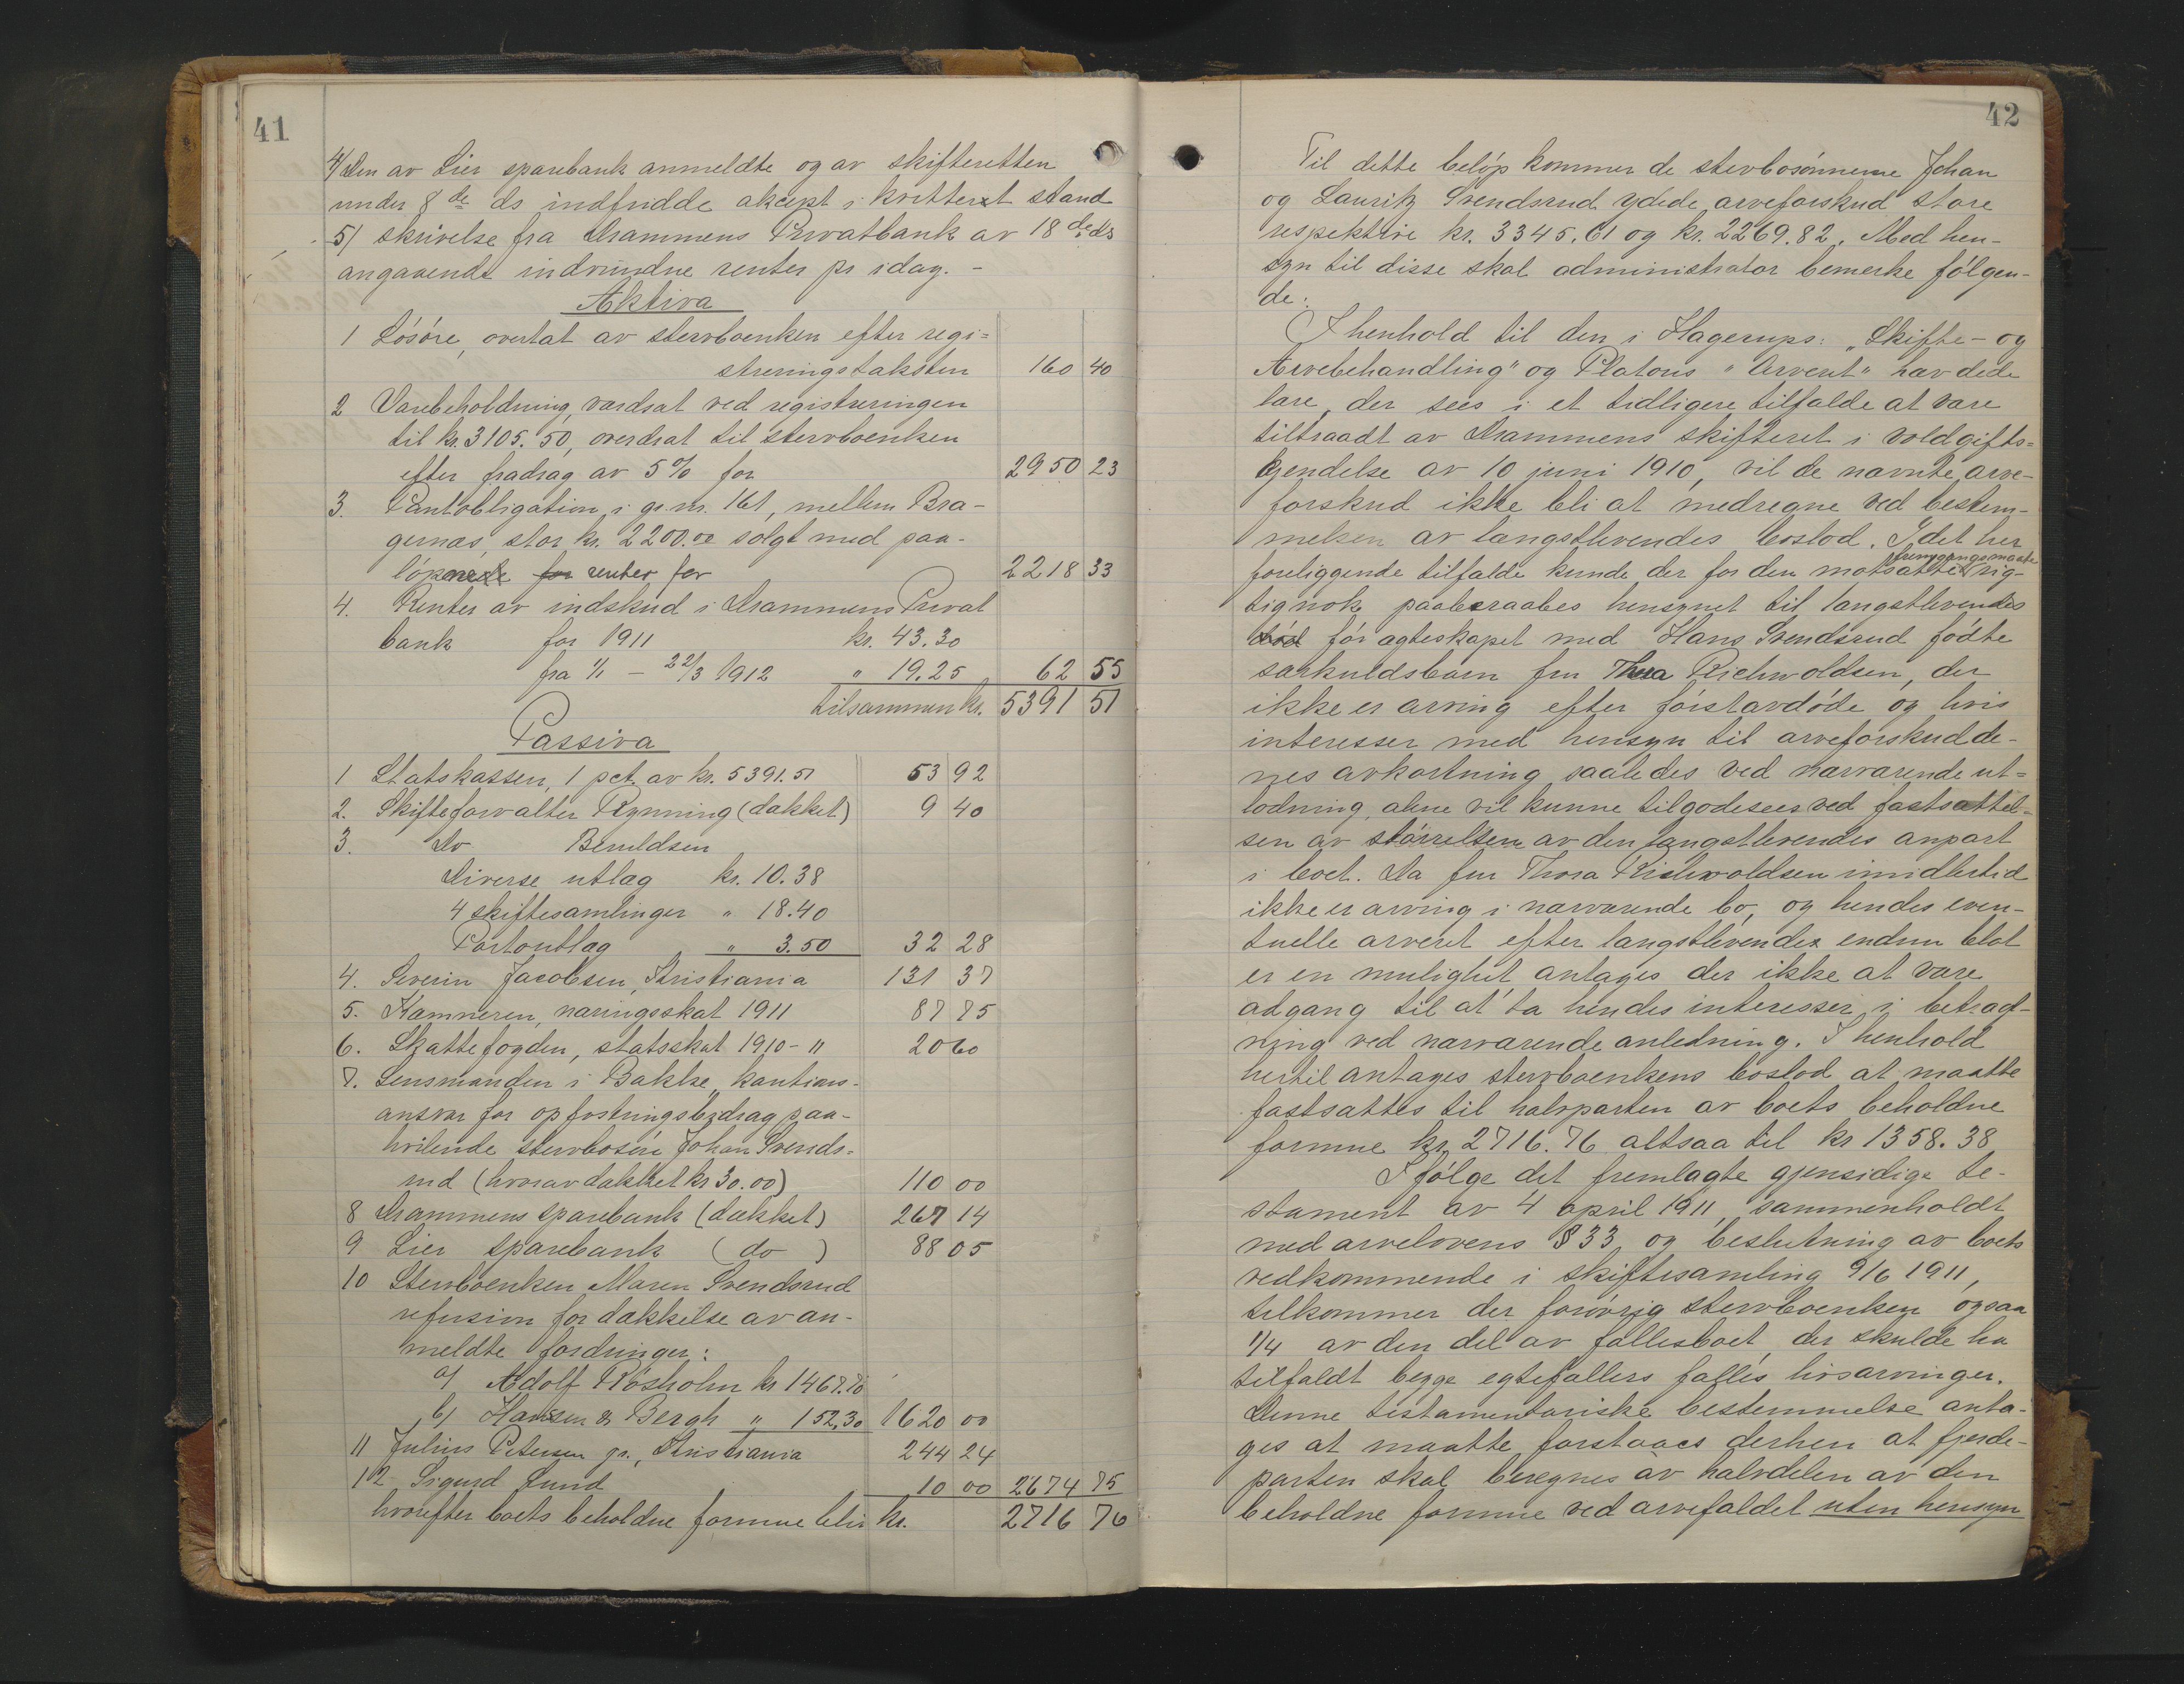 41
4/ Den av Lier sparebank anmeldte og av skifteretten
under 8de ds indfridde aksept i kvittert stand
5/ skrivelse fra Drammens Privatbank av 18de ds
angaaende indvundne renter pr idag. -
Aktiva
1 Løsøre, overtat av stervboenken efter regi=
streringstaksten 160 40
2 Varebeholdning, værdsat ved registreringen
til kr. 3105.50, overdrat til stervboenken
efter fradrag av 5% for 2950 23
3. Pantobligation i gr. nr. 161, mellem Bra-
gernæs, stor kr. 2200.00 solgt med paa-
løpende for renter for 2218 33
4. Renter av indskud i Drammens Privat
bank for 1911 kr. 43.30
fra 1/1 - 22/3 1912 " 19.25 62 55
tilsammen kr. 5391 51
Passiva
1 Statskassen, 1 pct. av kr. 5391.51 53 92
2. Skifteforvalter Rynning (dækket) 9 40
3. Do Beruldsen
Diverse utlæg kr. 10.38
4 skiftesamlinger " 18.40
Portoutlæg " 3.50 32 28
4. Severin Jacobsen, Kristiania 131 37
5. Kæmneren, næringsskat 1911 87 75
6. Skattefogden, statsskat 1910-11 20 60
7. Lensmanden i Bakke, kautions-
ansvar for opfostringsbidrag paa-
hvilende stervbosøn Johan Svends-
rud (hvorav dækket kr 30.00) 110 00
8 Drammens sparebank (dækket) 267 14
9 Lier sparebank (do) 88 05
10 Stervboenken Maren Svendsrud
refusion for dækkelse av an-
meldte fordringer:
a/ Adolf Rosholm kr 1467.70
b/ Hansen & Bergh " 152.30 1620 00
11 Julius Petersen jr., Kristiania 244 24
12 Sigurd Lund 10 00 2674 75
hvorefter boets beholdne formue blir kr. 2716 76
42
Til dette beløp kommer de stervbosønnerne Johan
og Lauritz Svendsrud ydede arveforskud store
respektive kr. 3345.61 og kr. 2269.82. Med hen-
syn til disse skal administrator bemerke følgen-
de:
I henhold til den i Hagerups: "Skifte- og
Arvebehandling" og Platous "Arveret" hævdede
lære, der sees i et tidligere tilfælde at være
tiltraadt av Drammens skifteret i voldgifts=
kjendelse av 10 juni 1910, vil de nævnte arve-
forskud ikke bli at medregne ved bestem-
melsen av længstlevendes boslod. I det her
fremgangsmaate
foreliggende tilfælde kunde der for den motsatte rig-
tignok paaberaabes hensynet til længstlevendes
før ægteskapet med Hans Svendsrud fødte
særkuldsbarn fru Thora Richwoldsen, der
ikke er arving efter førstavdøde og hvis
interesser med hensyn til arveforskudde-
nes avkortning, saaledes ved nærværende ut=
lodning, alene vil kunne tilgodesees ved fastsættel-
sen av størrelsen av den længstlevendes anpart
i boet. Da fru Thora Richwoldsen imidlertid
ikke er arving i nærværende bo, og hendes even-
tuelle arveret efter længstlevende endnu blot
er en mulighet, antages der ikke at være
adgang til at ta hendes interesser i betragt-
ning ved nærværende anledning. I henhold
hertil antages stervboenkens boslod at maatte
fastsættes til halvparten av boets beholdne
formue kr. 2716.76 altsaa til kr 1358.38
Ifølge det fremlagte gjensidige te-
stament av 4 april 1911, sammenholdt
med arvelovens § 33 og beslutning av boets
vedkommende i skiftesamling 9/6 1911,
tilkommer der forøvrig stervboenken ogsaa
1/4 av den del av fællesboet, der skulde ha
tilfaldt begge egtefællers fælles livsarvinger.
Denne testamentariske bestemmelse anta-
ges at maatte forstaaes derhen at fjerde-
parten skal beregnes av halvdelen av den
beholdne formue ved arvefaldet uten hensyn